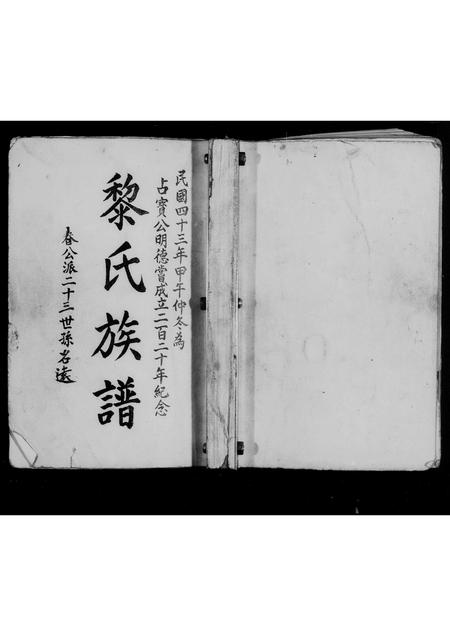 民國四十三年甲午仲冬為
占寶公明德嘗成立二百二十年紀念
黎氏族譜
春公派二十三世孫名遠